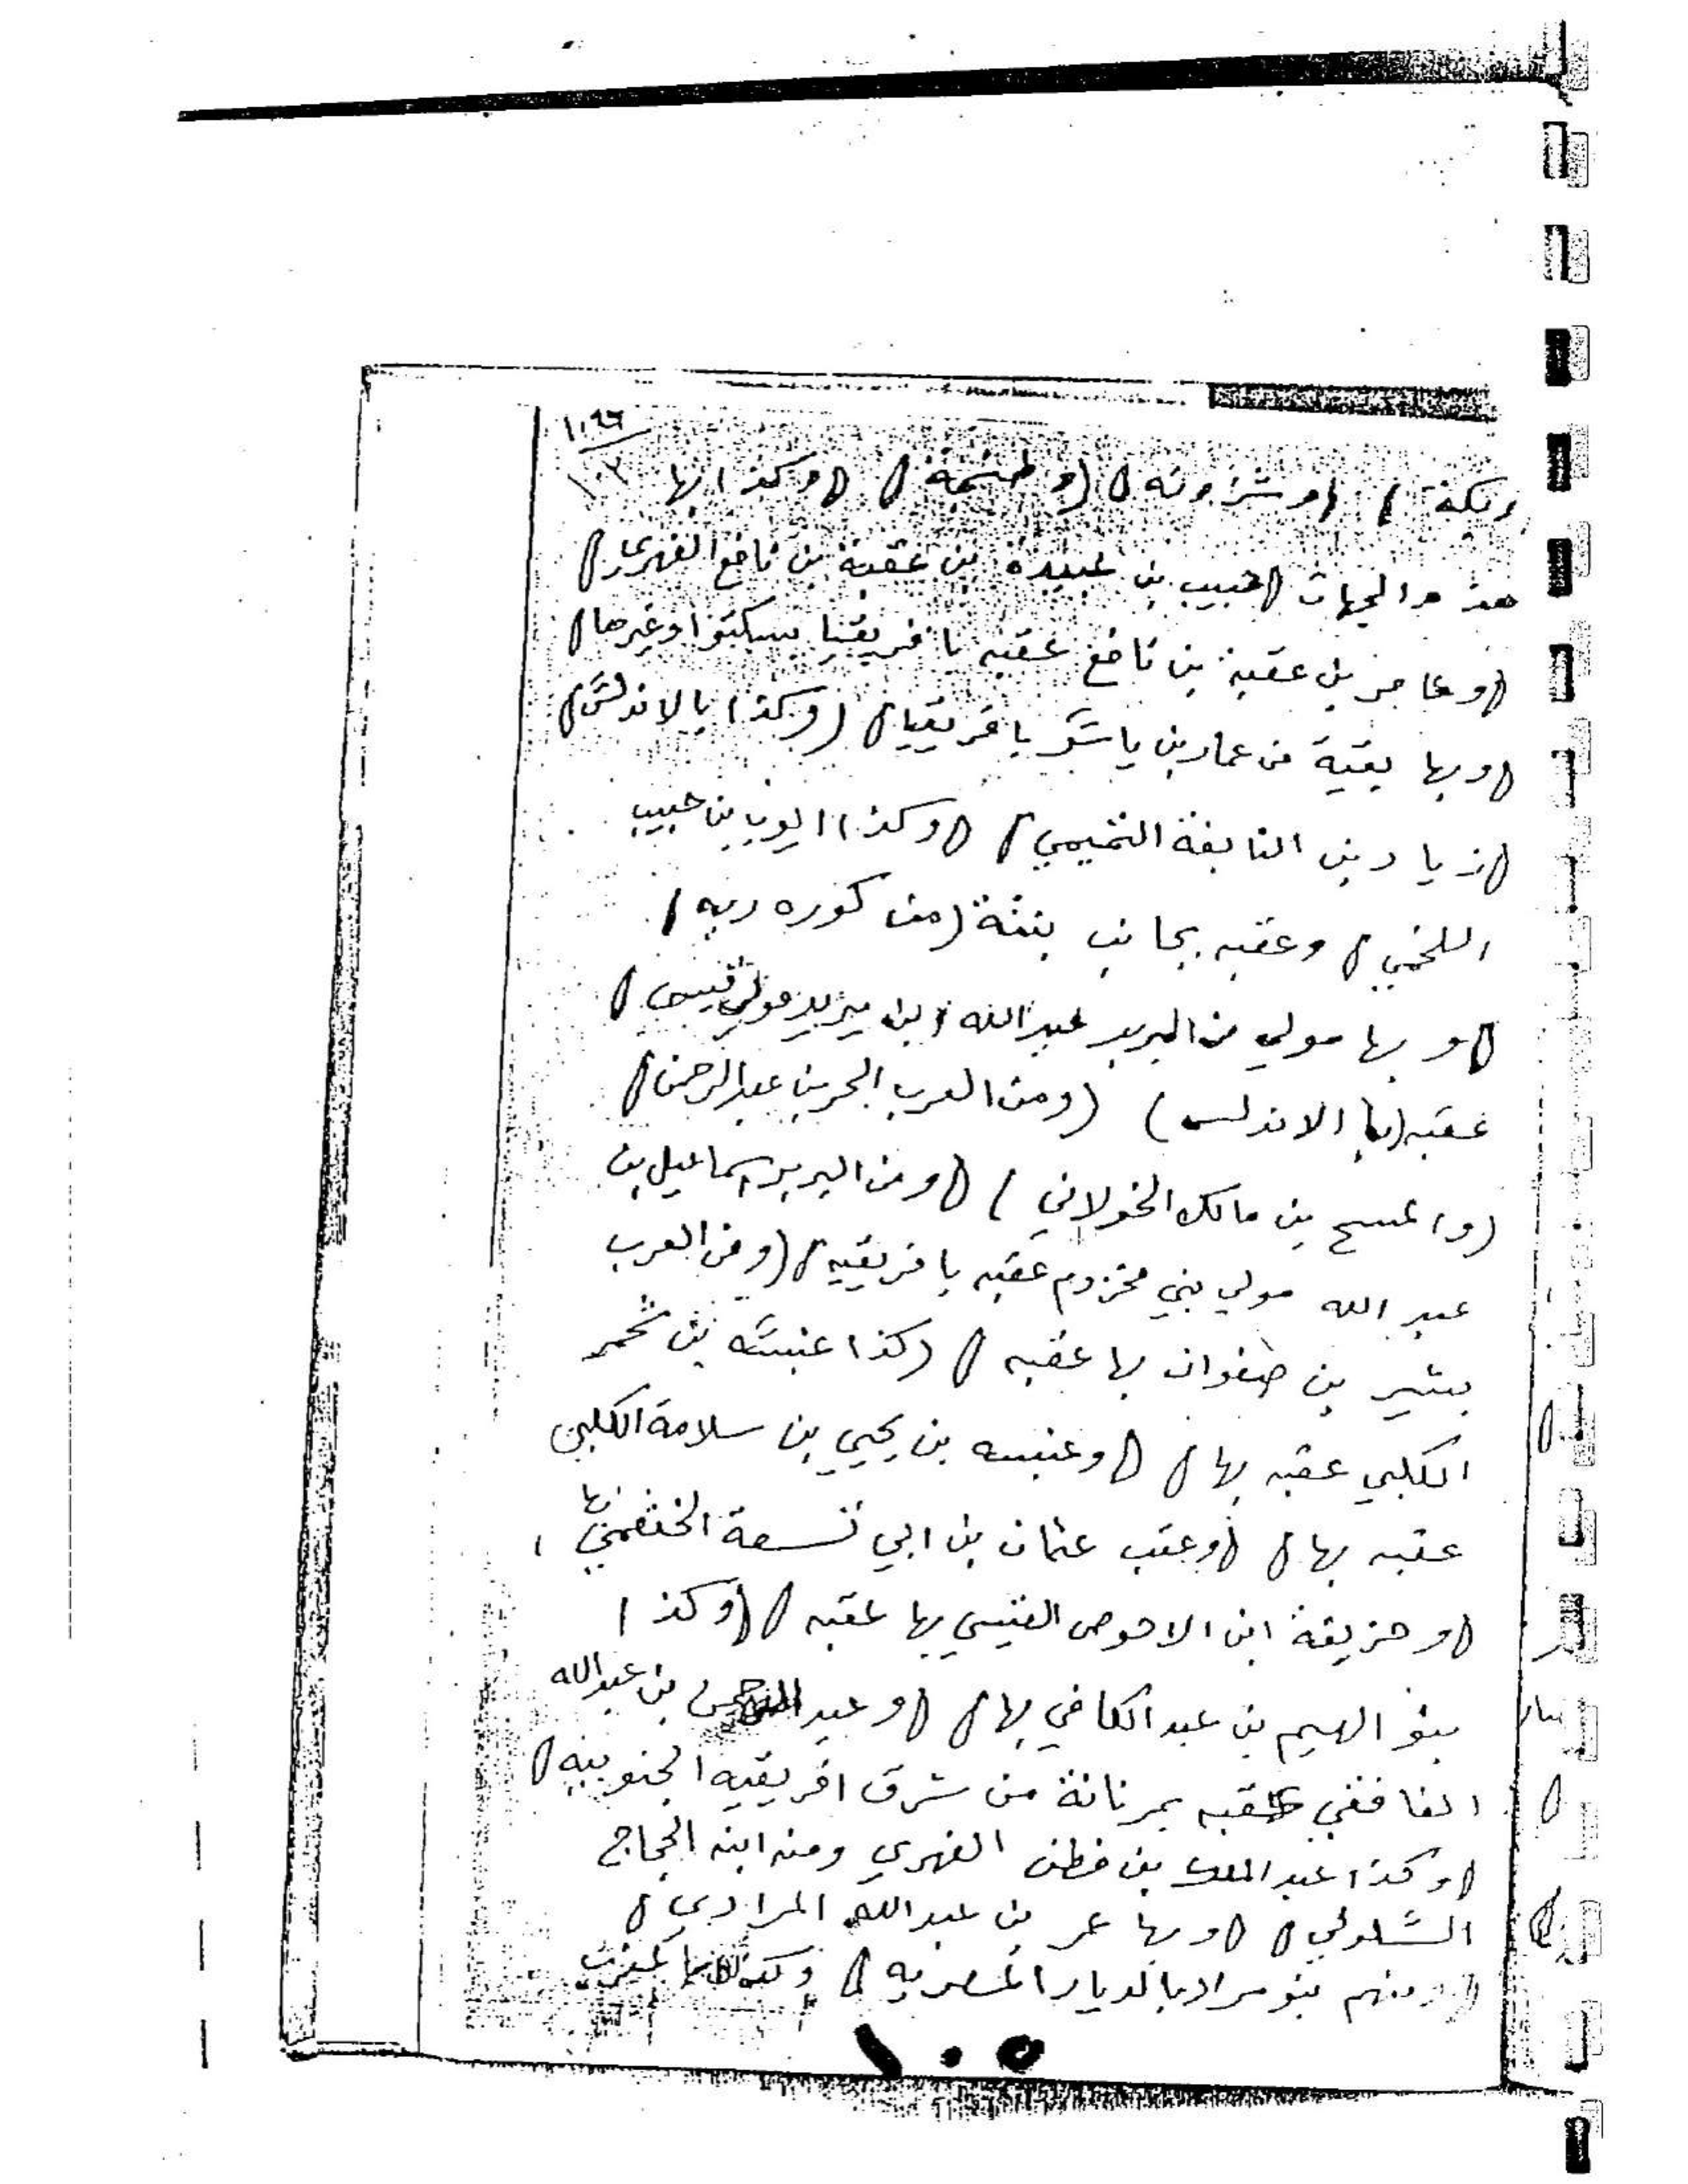 ١٠٩٦
١٠٢
(وشذونه) (وطنجة) (وكذا بها
هذه الجهات (حبيب بن عبيدة بن عقبة بن نافع الفهري)
(وعامر بن عقبة بن نافع عقبه بافريقيا وغيرها)
(وبها بقية من عمار بن ياسر بافريقيا) (وكذا بالاندلس)
(زياد بن النابغة التميمي) (وكذا ايوب بن حبيب
اللخمي) وعقبه بجانب (من كوره ريه)
(وبها مولي من البربر عبدالله ابن يزيد مولي قيس)
عقبه (با الاندلس) (ومن العرب الحر بن عبدالرحمن)
(والسمح بن مالك الخولاني) (ومن البربر اسماعيل بن
عبد الله مولي بني مخزوم عقبه بافريقيه) (ومن العرب
بشير بن صفوان بها عقبه) (وكذا عنبسه بن
الكلبي عقبه بها) (وعنبسه بن يحيي بن سلامة الكلبي
عقبه بها) (وعقب عثمان بن ابي نسعة الخثعمي بها
(وحذيفة ابن الاحوص القيسي بها عقبه) (وكذا
بنو الهيم بن عبد الكافي بها) (وعبد الرحمن بن عبدالله
الغافقي عقبه من شرق افريقيه الجنوبيه)
(وكذا عبد الملك بن قطن الفهري ومنه ابنه الحجاج
السلولي) (وبها عمر بن عبدالله المرادي)
(ومنهم بنو مراد بالديار المصريه)
١٠٥